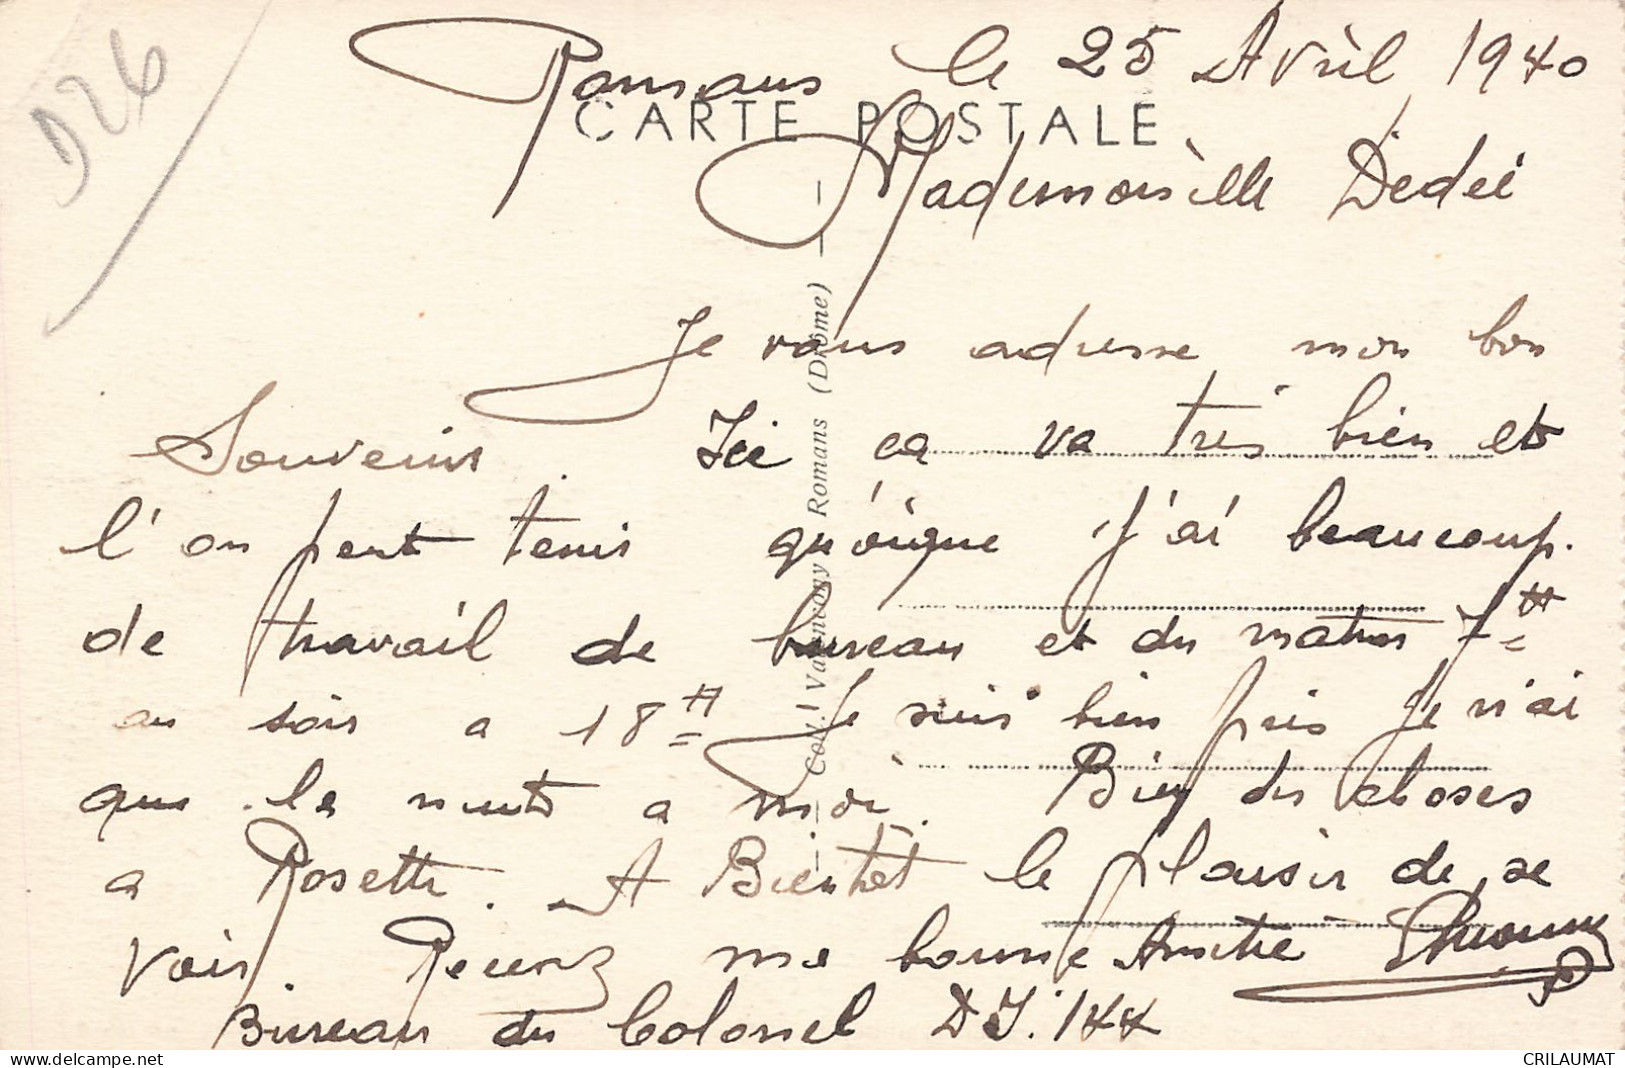 D26
Romans le 25 Avril 1940
CARTE POSTALE
Mademoiselle Dédée
Je vous adresse mon bon
Souvenir. Ici ça va très bien et
l'on peut tenir quoique j'ai beaucoup
de travail de bureau et du matin 7H
au soir a 18H Je suis bien pris Je n'ai
que la nuit a moi. Bien des choses
a Rosette. A Bientôt le plaisir de se
voir. Recevez ma bonne Amitié
Bureau du Colonel D.I. 144
Coll. Valencony Romans (Drôme)
CRILAUMAT
www.delcampe.net